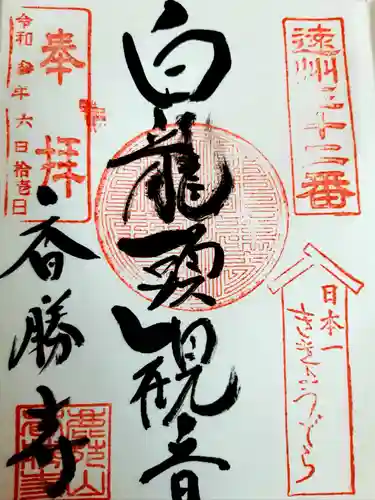 遠州三十二番
日本一
ききょうでら
白龍頭観音
奉拝
令和参年六月拾壱日
香勝寺